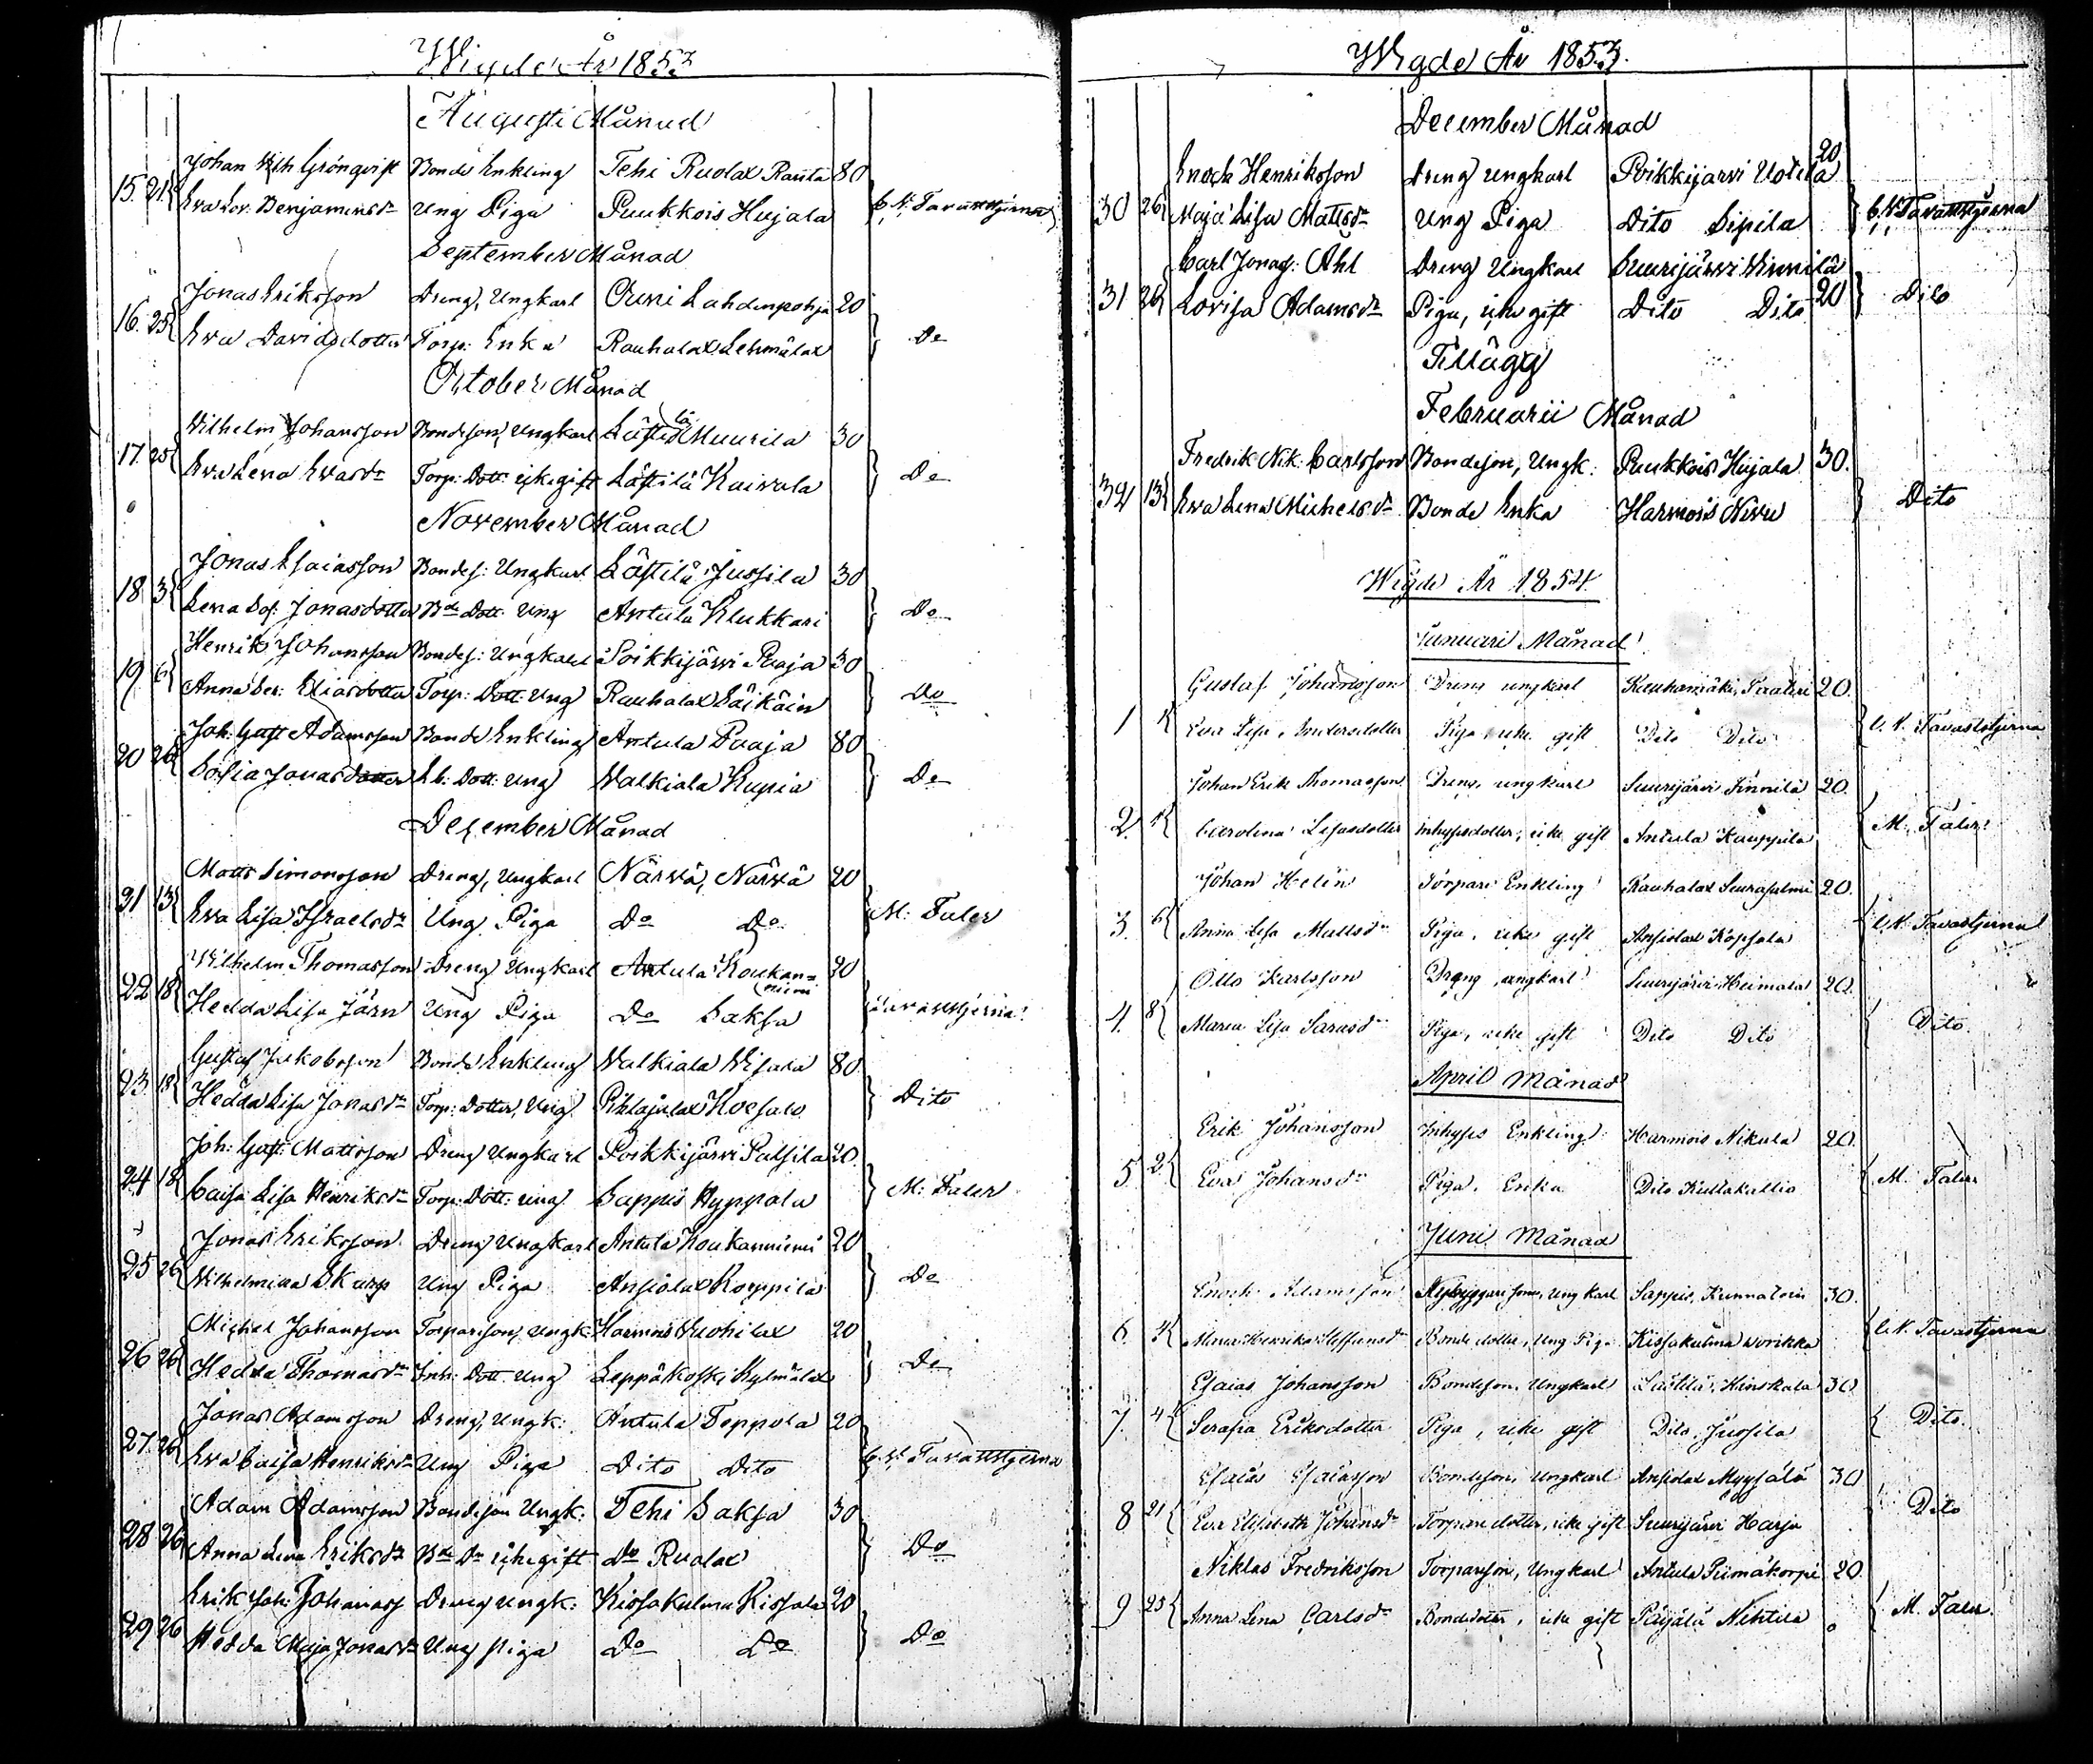 Wigde År 1853
Augusti Månad
Johan Wilh Grönqvist Bonde Enkling Tehi Ruolax Ranta 80
15. 21. Eva Lov. Benjaminsdr Ung Piga Puukkois Hujala C. N. Tavaststjerna
September Månad
Jonas Eriksson Dreng, Ungkarl Ouni Lahdenpohja 20
16. 25 Eva Davidsdotter Torp: Enka Rauhalax Lehmälax Do
October Månad
Vilhelm Johansson Bondeson, Ungkarl Lästilä Muurila 30
17. 25 Eva Lena Evasdr Torp: Dott: icke gift Lästilä Kaivola Do
November Månad
Jonas Esaiasson Bondes: Ungkarl Lästilä Jussila 30
18 3 Lena Sof. Jonasdotter Bde Dott: Ung Antula Klukkari Do
Henrik Johansson Bondes: Ungkarl Poikkijärvi Paaja 30
19 6 Anna Ser: Eliasdotter Torp: Dott: Ung Rauhalax Säikäin Do
Joh: Gust Adamsson Bonde Enkling Antula Paaja 80
20 26 Sofia Jonasdotter Dott: Ung Walkiala Kupia Do
December Månad
Matts Simonsson Dreng, Ungkarl Närvä, Närvä 20
21 13 Eva Lisa Israelsdr Ung Piga Do Do M: Faler
Vilhelm Thomasson Dreng Ungkarl Antula Koukanniemi 20
22 18 Hedda Lisa Järn Ung Piga Do Saksa Tavaststjerna
Gustaf Jakobsson Bonde Enkling Walkiala Wisala 80
23 18 Hedda Lisa Jonasdr Torp: Dotter, Ung Pihlajalax Dito
Joh: Gust: Mattsson Dreng Ungkarl Poikkijärvi Palsila 20
24 18 Caisa Lisa Henriksdr Torp: Dott: ung Sappis Hyppola M: Faler
Jonas Eriksson Dreng Ungkarl Antula Koukanniemi 20
25 26 Vilhelmina Skarp Ung Piga Ansiolax Korppila Do
Michel Johansson Torpareson, Ungk: Harmois Wuohilax 20
26 26 Hedda Thomasdr Inh: Dott: Ung Leppäkoski Kylmälax Do
Jonas Adamsson Dreng, Ungk: Antula Teppola 20
27. 26 Eva Caisa Henriksdr Ung Piga Dito Dito C. N. Tavaststjerna
Adam Adamsson Bondeson Ungk: Tehi Saksa 30
28 26 Anna Lena Eriksdr Bde Dr icke gift Do Ruolax Do
Erik Joh: Johanss Dreng Ungk: Kissakulma Kissala 20
29 26 Hedda Maja Jonasdr Ung piga Do Do Do
Wigde År 1853.
December Månad
Enoch Henriksson Dreng ungkarl Poikkijarvi Uotila 20
30 26 Maja Lisa Mattsdr Ung Piga Dito Sipila C. N. Tavaststjerna
Carl Jonas: Ahl Dreng Ungkarl Suurijärvi Finnilä
31 26 Lovisa Adamsdr Piga, icke gift Dito Dito 20 Dito
Tillägg
Februarii Månad
Fredrik Nik: Carlsson Bondeson, Ungk: Puukkois Hujala 30.
32 13 Eva Lena Michelsdr Bonde Enka Harmois Nivu Dito
Wigde År 1854.
Januari Månad
Gustaf Johansson Dreng ungkarl Kauhamäki, Paateri 20.
1 1 Eva Lisa Andersdotter Piga icke gift Dito Dito C. N. Tavaststjerna
Johan Erik Thomasson Dreng, ungkarl Suurijärvi Finnilä 20.
2. 1 Carolina Lisasdotter Inhysesdotter, icke gift Antula Kauppila M. Faler
Johan Helin Torpare Enkling Rauhalax Suurasalmi 20.
3. 6 Anna Lisa Mattsdr Piga, icke gift Ansiolax Kopsala C. N. Tavaststjerna
Otto Karlsson Dreng, ungkarl Suurijärvi Heimala 20.
4. 8 Maria Lisa Sarasdr Piga, icke gift Dito Dito Dito.
April Månad
Erik Johansson Inhyses Enkling Harmois Nikula 20.
5. 2. Eva Johansdr Piga, Enka Dito Kultakallio M. Faler
Juni Månad
Enoch Adamsson Nybyggareson, Ungkarl Sappis, 30.
6. 4 Maria Henrika Steffansdr Bonde dotter, Ung Piga Kissakulma Worikka C. N. Tavaststjerna
Esaias Johansson Bondeson, Ungkarl Lästilä, Hinskala 30
7. 4 Serafia Eriksdotter Piga, icke gift Dito, Jussila Dito.
Esaias Esaiasson Bondeson, Ungkarl Ansiolax Myysälä 30
8 21 Eva Elisabeth Johansdr Torparedotter, icke gift Suurijärvi Harja Dito
Niklas Fredriksson Torpareson, Ungkarl Antula Piimäkorpi 20.
9 25 Anna Lena Carlsdr Bondedotter, icke gift Päijälä Nihtilä M. Faler.